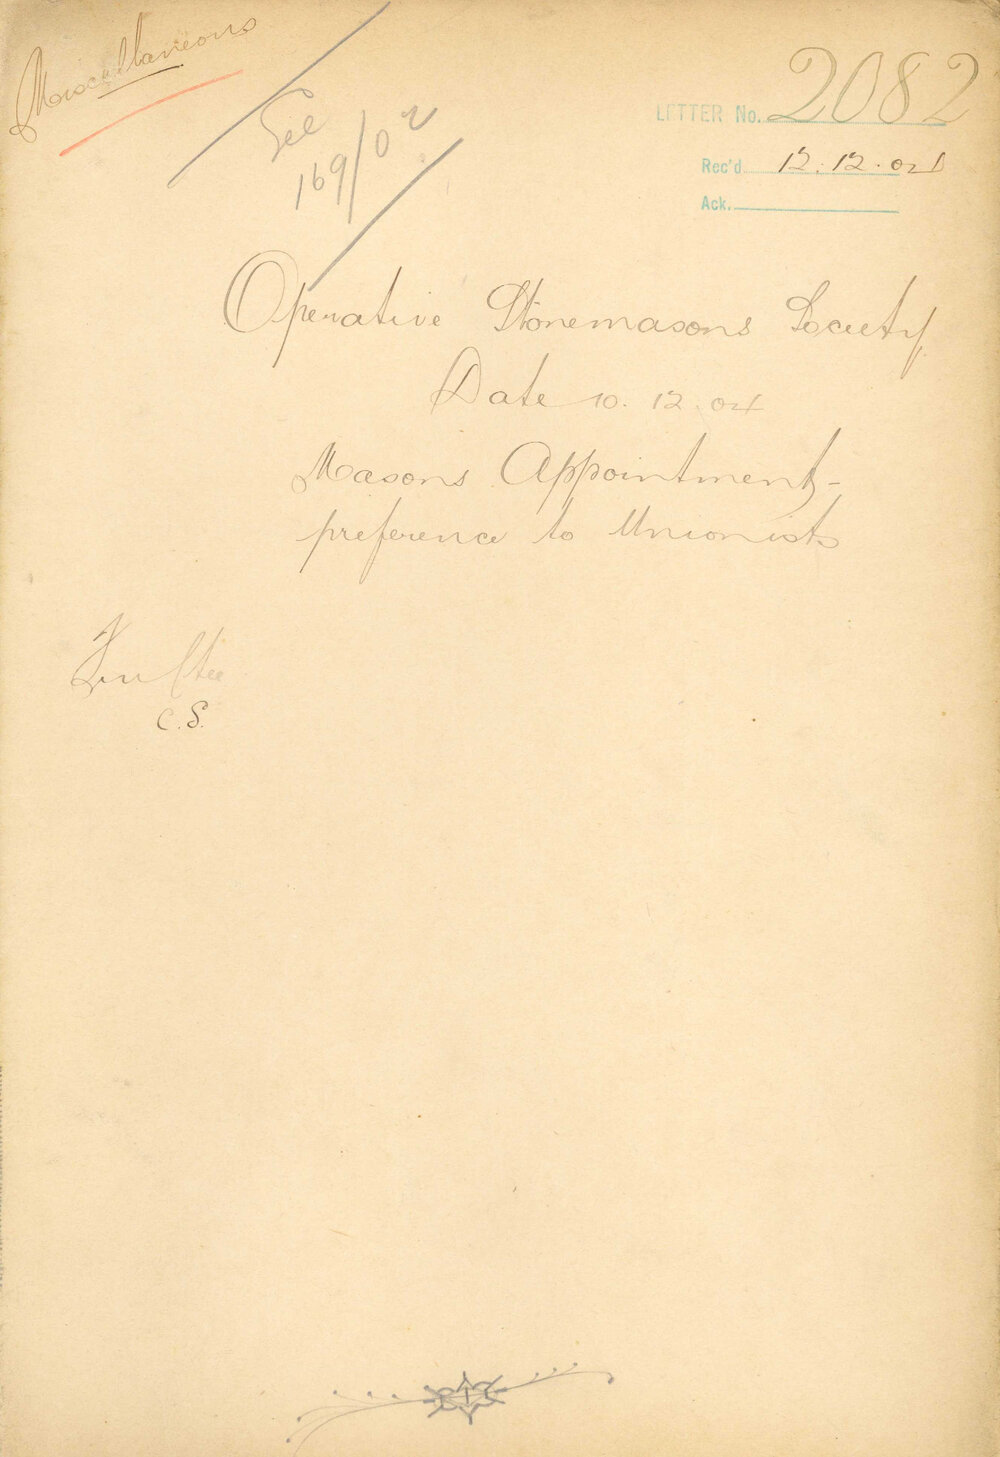 Miscellaneous
See
169/02
LETTER No. 2082
Rec'd 12.12.04
Ack.
Operative Stonemasons Society
Date 10.12.04
Masons Appointment -
preference to Unionists
Fin Ctee
C.S.